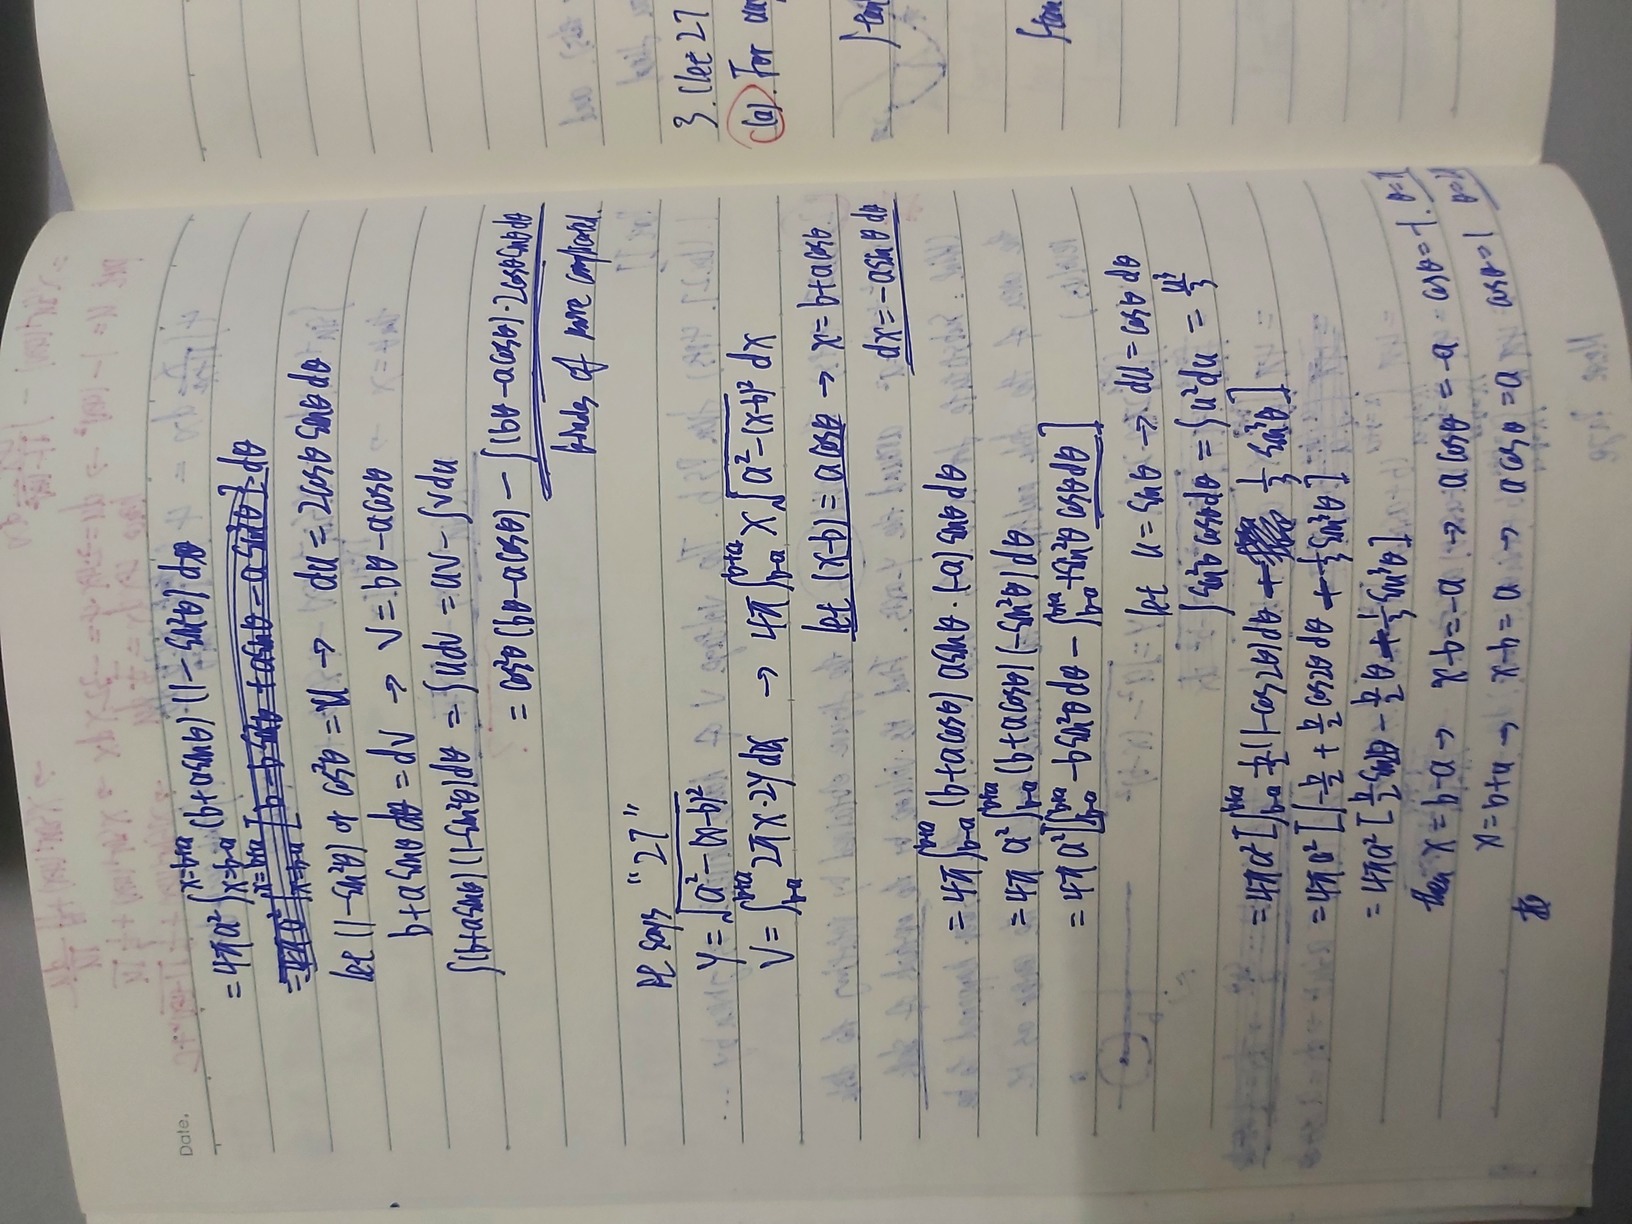 Date.
= 4πa² ∫_{x=b-a}^{x=b+a} (b+asinθ)·(1-sin²θ) dθ
= 4πa² ∫_{x=b-a}^{x=b+a} [b - bsin²θ + asinθ - asin³θ] dθ
let (1-sin²θ) or cos²θ = u → du = 2cosθ sinθ dθ
b+asinθ dθ = dv → v = bθ-acosθ
∫(b+asinθ)(1-sin²θ)dθ = ∫udv = uv - ∫vdu
= cos²θ (bθ-acosθ) - ∫(bθ-acosθ)·2cosθsinθdθ
kinda of more complicated.
It says "27"
y = √(a²-(x-b)²)
V = ∫_{b-a}^{b+a} 2πx·2y dx → 4π ∫_{b-a}^{b+a} x √(a²-(x-b)²) dx
let (x-b) = acosθ → x = b+acosθ
dx = -asinθ dθ
= 4π ∫_{b-a}^{b+a} (b+acosθ) asinθ·(-a) sinθ dθ
= 4π a² ∫_{b-a}^{b+a} (b+acosθ) (-sin²θ) dθ
= 4π a² [∫_{b-a}^{b+a} -bsin²θ dθ - ∫_{b-a}^{b+a} +sin²θ cosθdθ]
let u = sinθ → du = cosθ dθ
∫sin²θ cosθdθ = ∫u²du = u³/3
= 4πa² [∫_{b-a}^{b+a} -b/2 (1-cos2θ)dθ + 1/3 sin³θ]
= 4πa² [∫-b/2 + b/2 cos2θ dθ + 1/3 sin³θ]
= 4πa² [b/2 sin2θ - b/2 θ + 1/3 sin³θ]
then x = b-a → x-b = -a → acosθ = -a cosθ = -1. θ=π
x = b+a → x-b = a → acosθ = a cosθ = 1
3. (let 27
(a). For
∫tan
∫tan